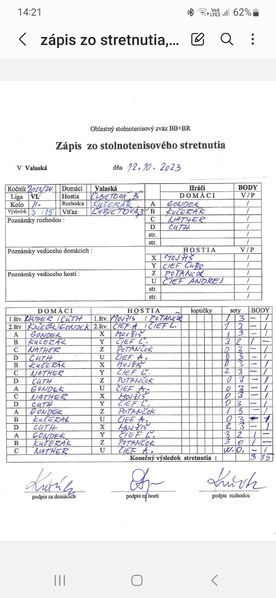 14:21 62%
zápis zo stretnutia,...
Oblastný stolnotenisový zväz BB+BR
Zápis zo stolnotenisového stretnutia
V Valaská dňa 12.10.2023
Ročník 2023/24 Domáci Valaská Hráči BODY
Liga VI. Hostia ĽUBIETOVÁ "B" DOMÁCI V/P
Kolo II. Rozhodca KUČERÁK A GONDEK /
Výsledok 3:15 Víťaz ĽUBIETOVÁ "B" B KUČERÁK /
Poznámky rozhodcu : C NATHER /
D CUTH /
str.
str.
Poznámky vedúceho domácich : HOSTIA V/P
X MOJŽIŠ /
Y CIEF ĽUBO /
Poznámky vedúceho hostí : Z POTANČOK /
U CIEF ANDREJ /
str.
str.
DOMÁCI HOSTIA loptičky sety BODY
1.štv. NATHER/CUTH MOJŽIŠ/POTANČOK 1 3 - 1
2.štv. KUČERÁK/GONDEK CIEF A./CIEF Ľ. 1 3 - 1
A GONDEK X MOJŽIŠ 1 3 - 1
B KUČERÁK Y CIEF Ľ. 3 2 1 -
C NATHER Z POTANČOK 0 3 - 1
D CUTH U CIEF A. 0 3 - 1
B KUČERÁK X MOJŽIŠ 0 3 - 1
C NATHER Y CIEF Ľ. 3 - 1
D CUTH Z POTANČOK 0 3 - 1
A GONDEK U CIEF A. 0 3 - 1
C NATHER X MOJŽIŠ 0 3 - 1
D CUTH Y CIEF Ľ. 3 - 1
A GONDEK Z POTANČOK 1 3 - 1
B KUČERÁK U CIEF A. 0 3 - 1
D CUTH X MOJŽIŠ 2 3 - 1
A GONDEK Y CIEF Ľ. 3 2 1 -
B KUČERÁK Z POTANČOK 3 0 1 -
C NATHER U CIEF A. W.O. - 1
Konečný výsledok stretnutia : 3 15
podpis za domácich podpis za hostí podpis rozhodcu